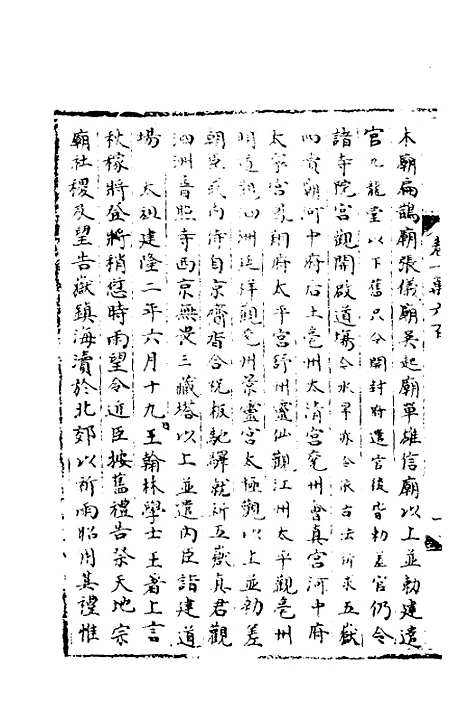 木廟扁鵲廟張儀廟吳起廟單雄信廟以上並勅建遣
官九龍堂以下舊只令開封府遣官後皆勅差官仍令
諸寺院宮觀開啟道場令水旱亦令依古法所求五嶽
四瀆廟河中府后土亳州太清宮兗州會真宮河中府
太寧宮鳳翔府太平宮舒州靈仙觀江州太平觀亳州
明道觀泗洲延祥觀兗州景靈宮太極觀以上並勅差
朝臣或內侍自京齎香合祝板馳驛就祈五嶽真君觀
泗洲普照寺西京無畏三藏塔以上並遣內臣詣建道
場 太祖建隆二年六月十九日翰林學士王著上言
秋稼將登將稍愆時雨望令近臣按舊禮告祭天地宗
廟社稷及望告嶽鎮海瀆於北郊以祈雨詔用其禮惟
卷一萬六百